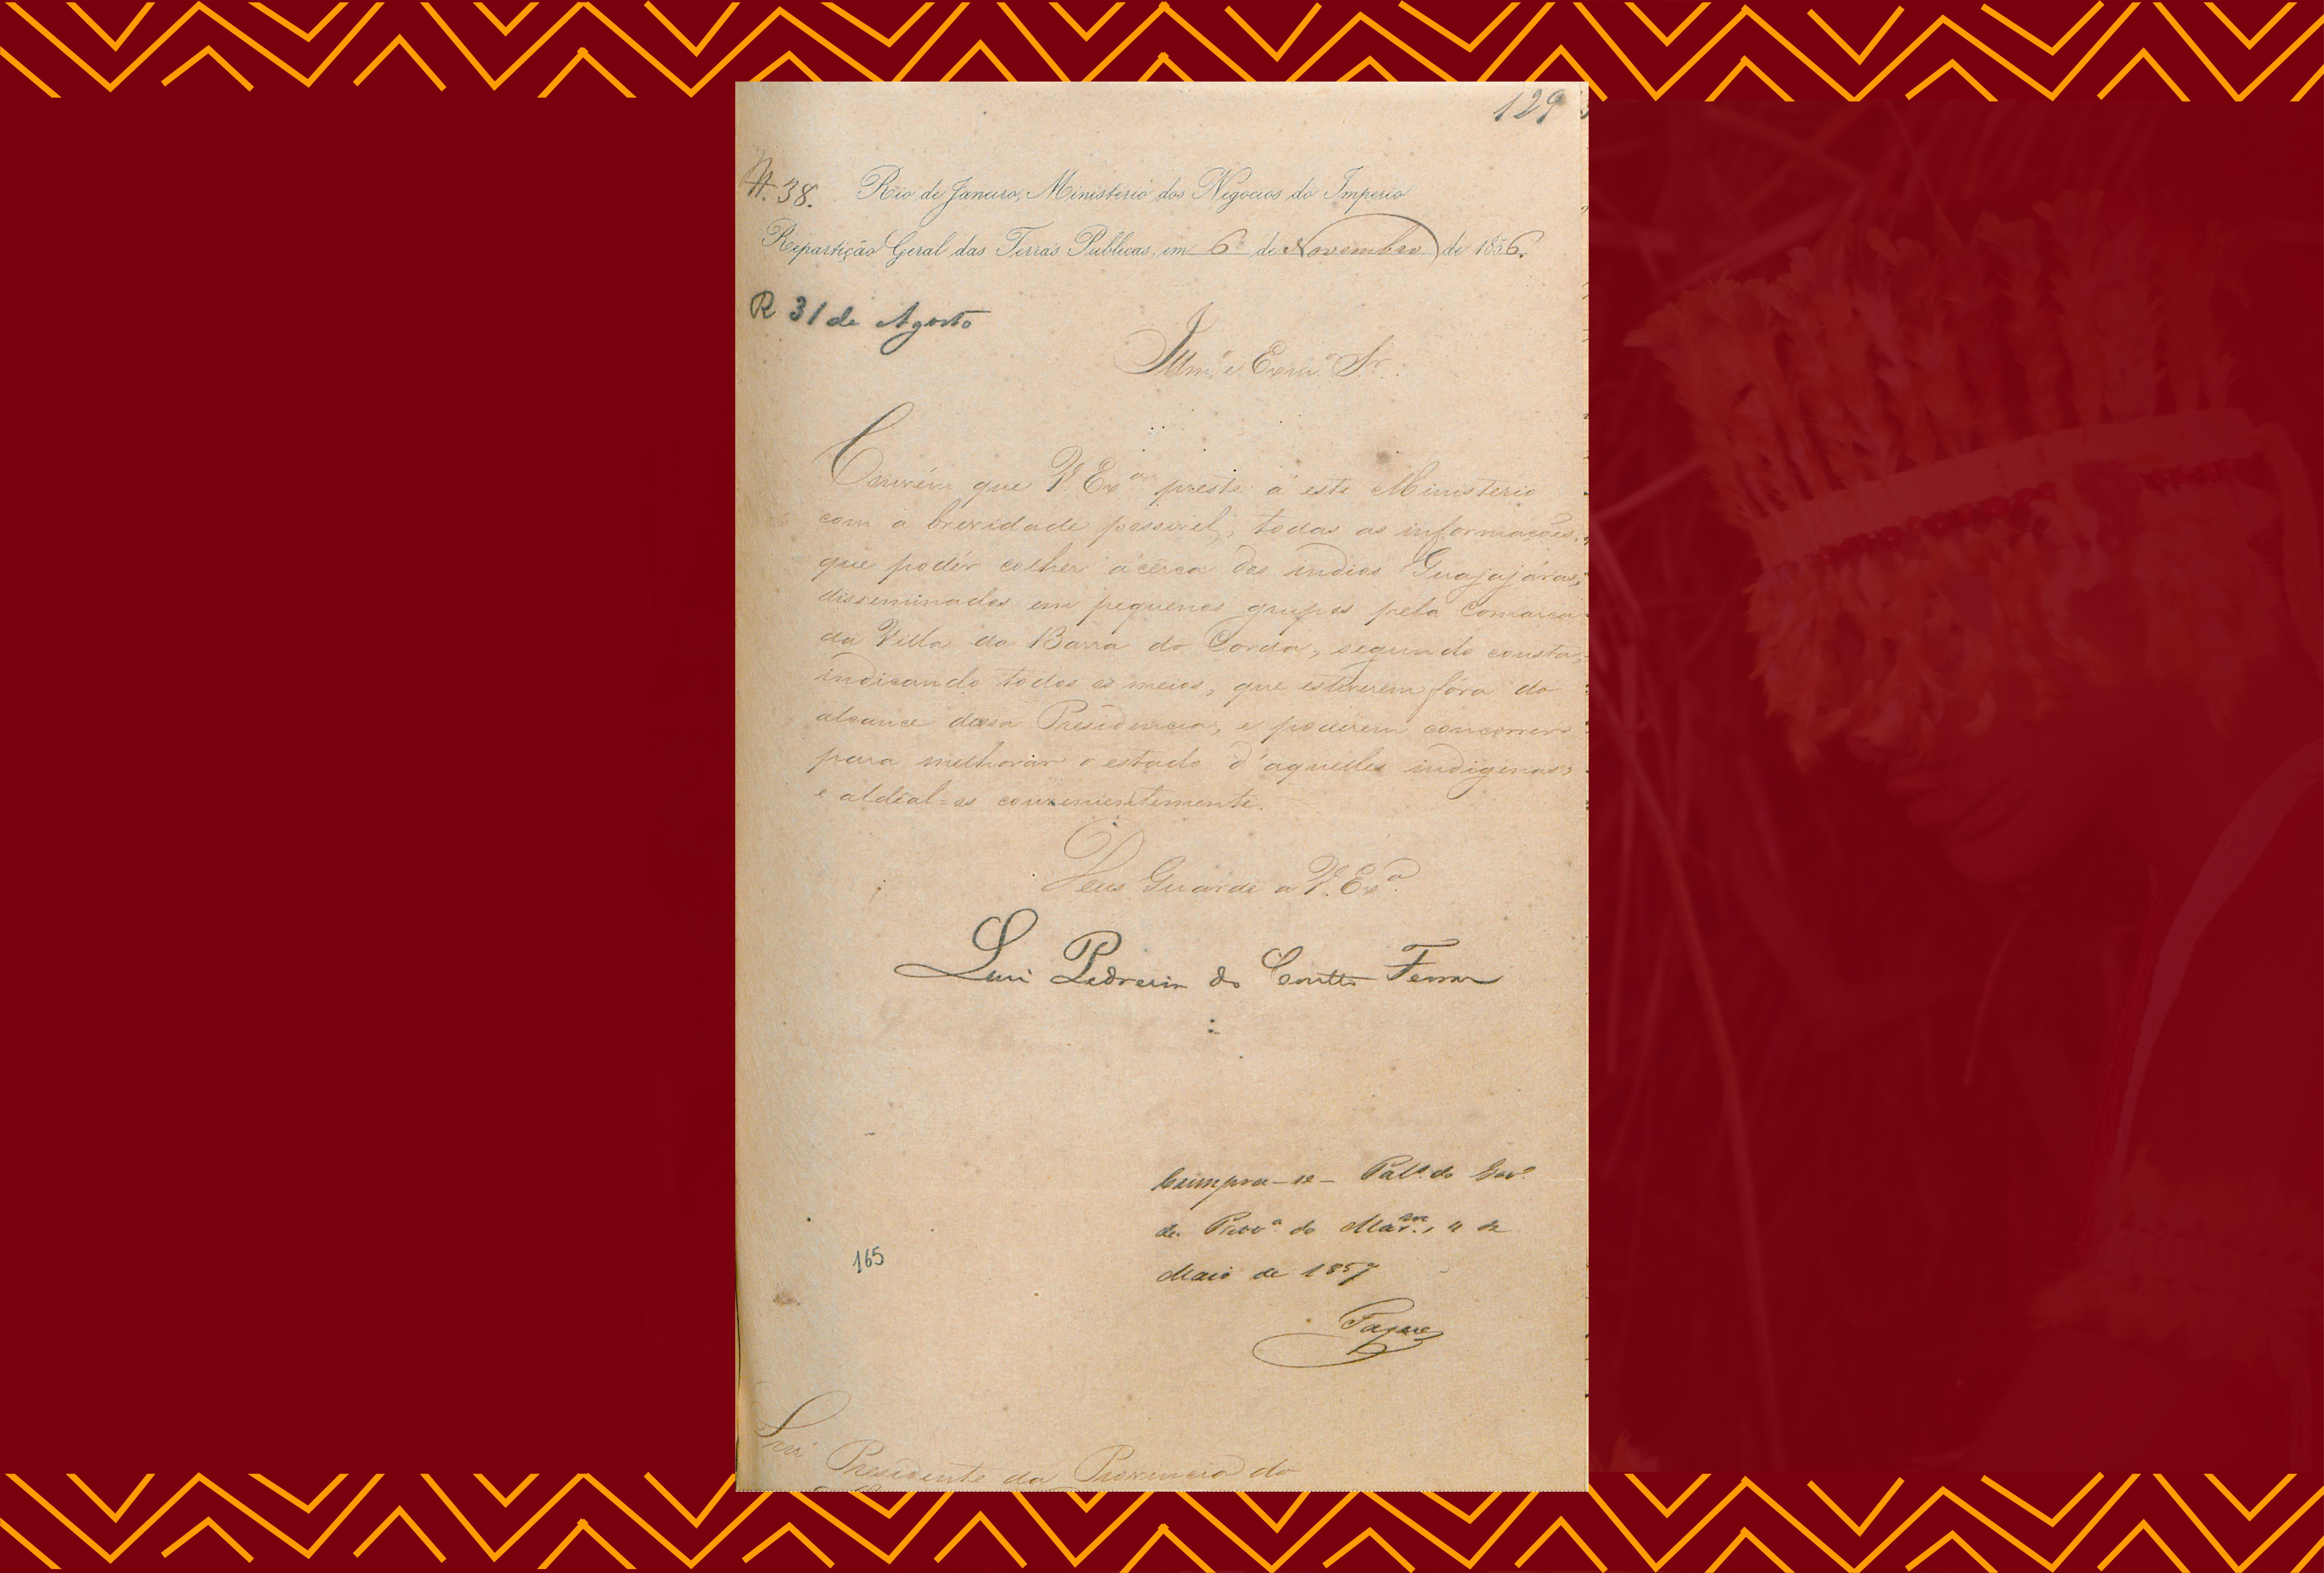 129
N. 38. Rio de Janeiro, Ministerio dos Negocios do Imperio
Repartição Geral das Terras Publicas, em 6 de Novembro de 1856.
R 31 de Agosto
Illm.º e Exm.º Sr.
Convém que V. Ex.ª preste á este Ministerio
com a brevidade possivel, todas as informações,
que podér colher ácêrca dos indios Guajajáras,
disseminados em pequenos grupos pela Comarca
da Villa da Barra do Corda, segundo consta,
indicando todos os meios, que estiverem fóra do
alcance dessa Presidencia, e poderem concorrer
para melhorar o estado d'aquelles indigenas,
e aldêal-os convenientemente.
Deus Guarde a V. Ex.ª
Luiz Pedreira do Coutto Ferraz
Cumpra-se - Pal.º do Gov.º
da Prov.ª do Mar.am, 4 de
Maio de 1857
165
Snr. Presidente da Provincia do